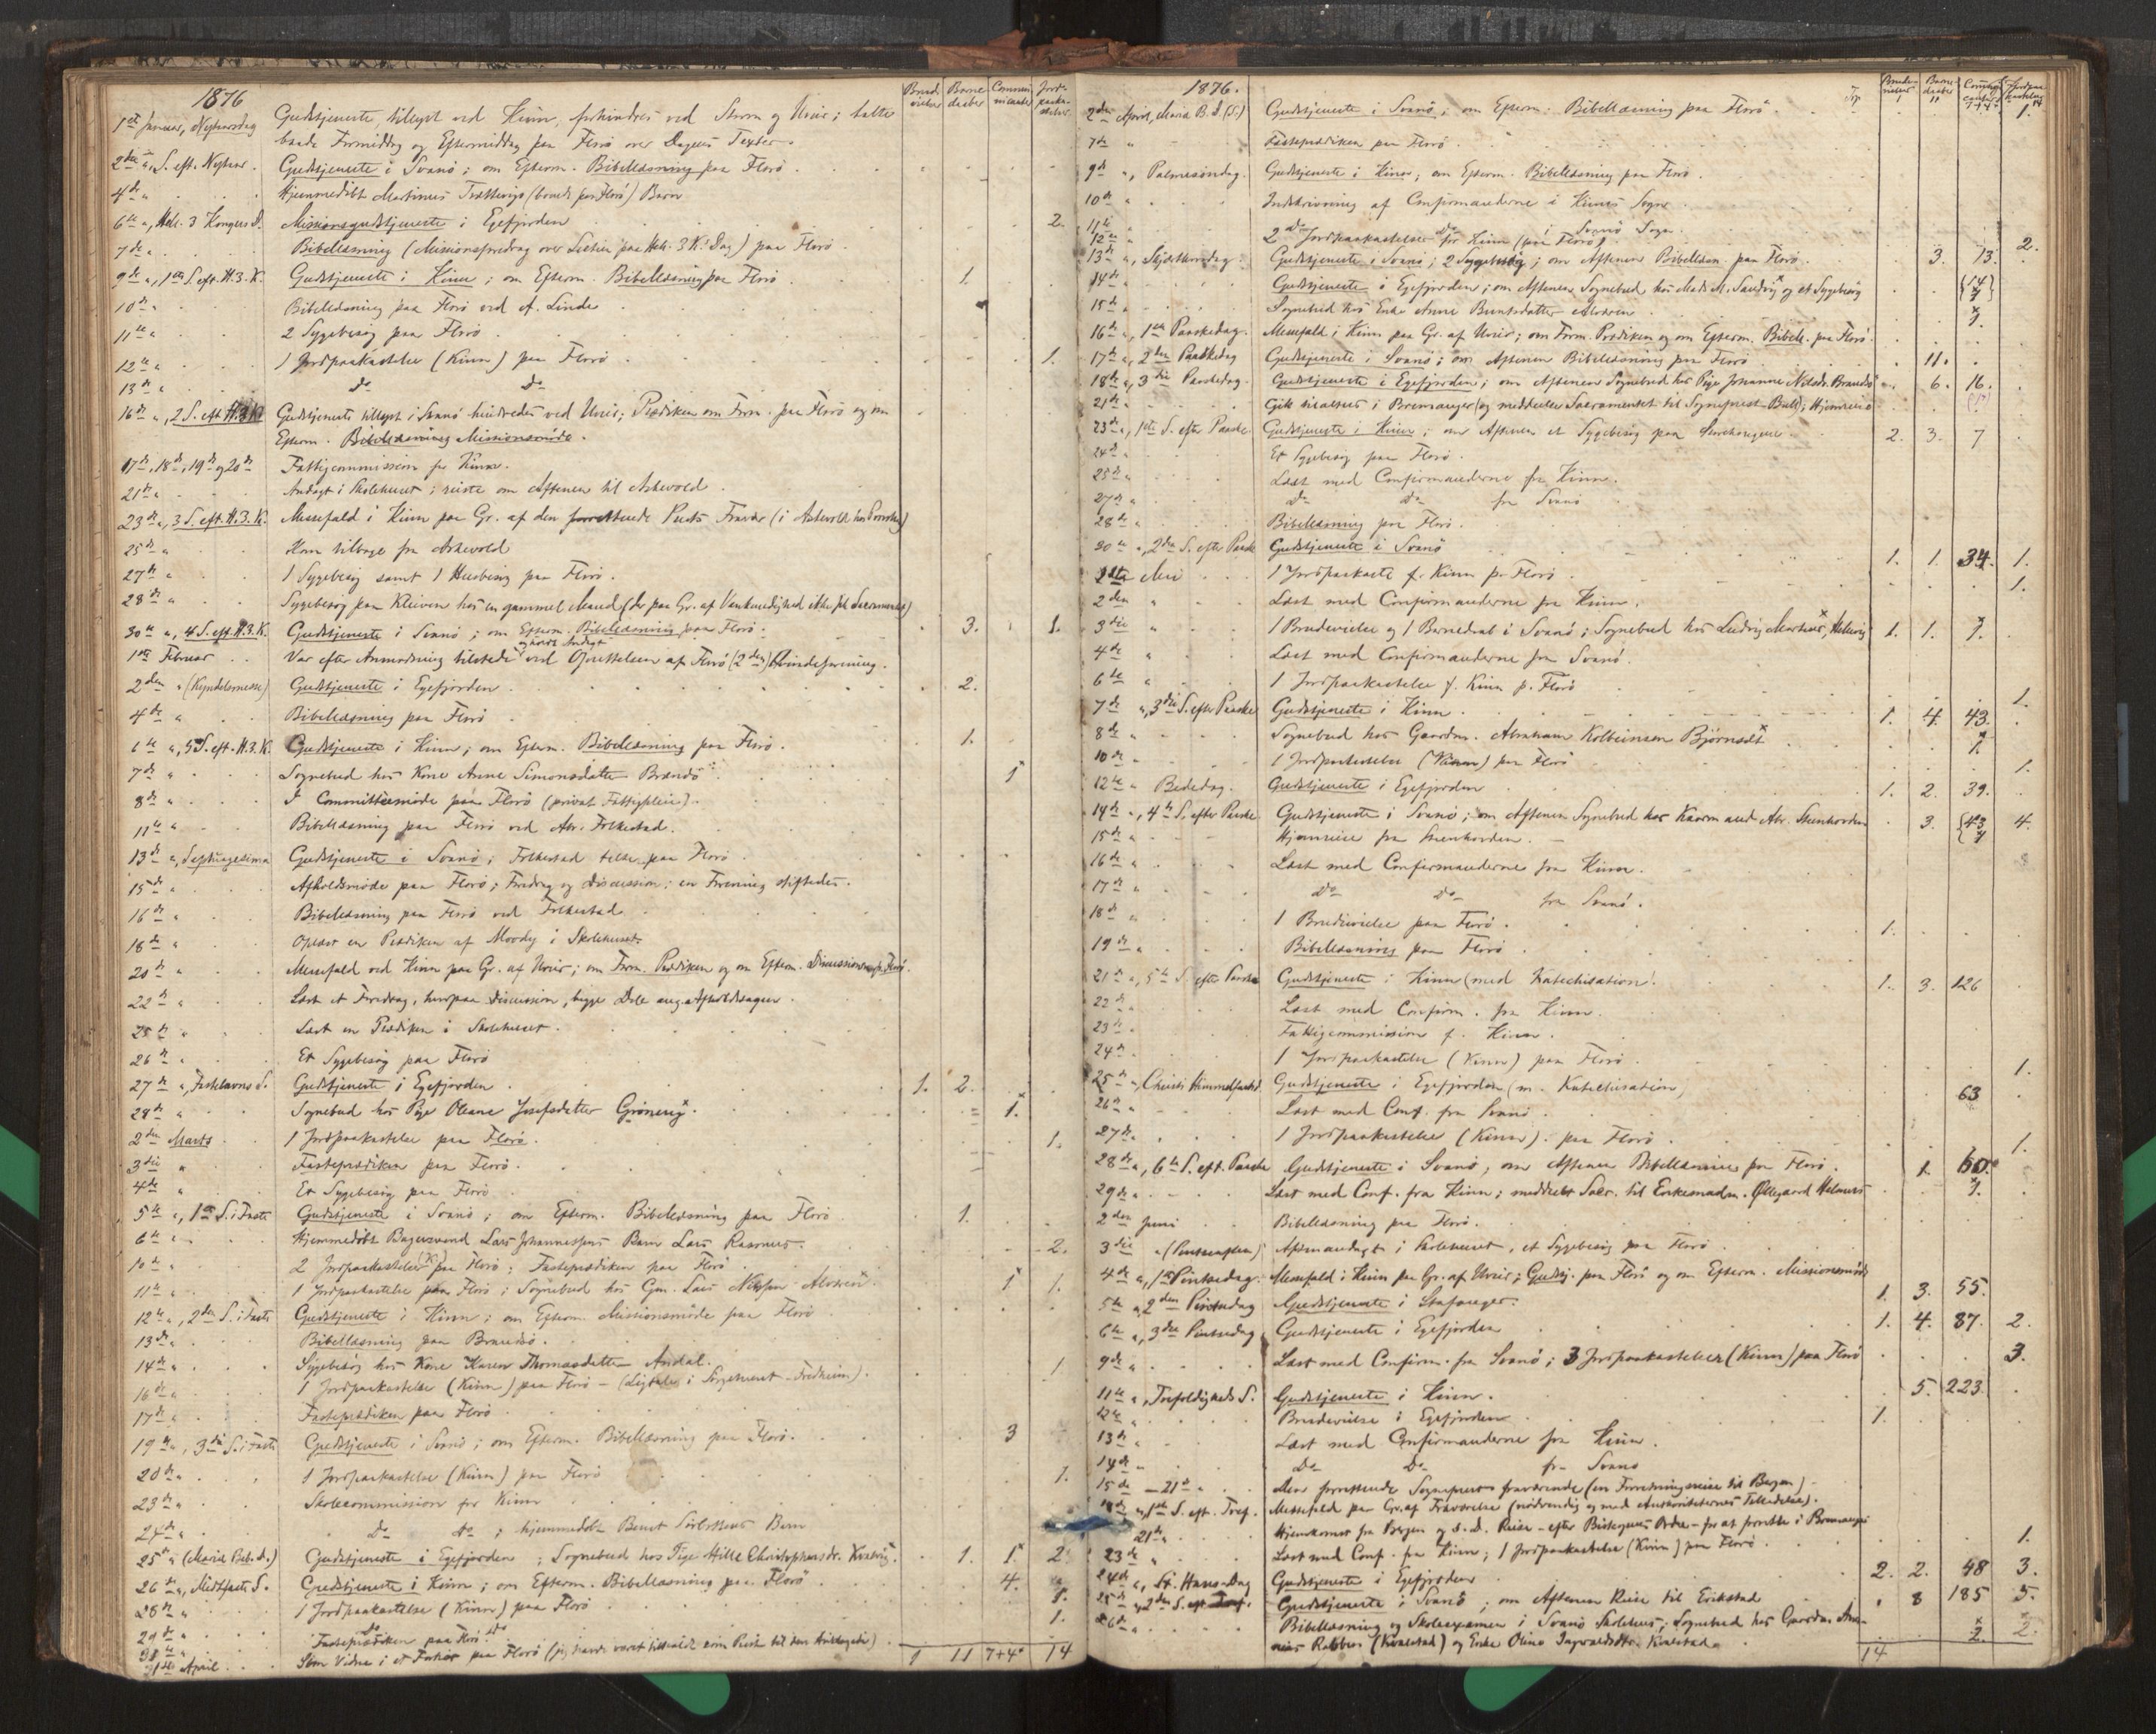 1876
Brud- vielser Barne- daaber Commu- nicanter Jords- paaka- stelser
1ste Januar, Nytaarsdag Gudstjeneste, tillyst ved Kinn, forhindret ved Storm og Uveir; talte
baade Formiddag og Eftermiddag paa Florö over Dagens Texter.
2den ", S. eft. Nytaar. Gudstjeneste i Svanö; om Efterm. Bibellæsning paa Florö.
4de " Hjemmedöbt Martinus (boende paa Florö) Barn
6te ", Hell. 3 Kongers D. Missionsgudstjeneste i Egefjorden 2.
7de " Bibellæsning (Missionsforedrag over Lectien paa Hell. 3 K. Dag) paa Florö.
9de ", 1ste S. eft. H. 3. K. Gudstjeneste i Kinn; om Efterm. Bibellæsning paa Florö 1.
10de " Bibellæsning paa Florö ved A. Linde
11te " 2 Sygebesög paa Florö
12te " 1 Jordpaakastelse (Kinn) paa Florö 1.
13de " do do
16de ", 2 S. eft. H. 3 K. Gudstjeneste tillyst i Svanö hindredes ved Uveir; Prædiken om Form. paa Florö og om
Efterm. Missionsmöde.
17de, 18de, 19de og 20de Fattigcommission for Kinn.
21de " Andagt i Skolehuset; reiste om Aftenen til Askevold.
23de ", 3 S. eft. H. 3. K. Messefald i Kinn paa Gr. af den forrettende Præsts Fravær (i Askevold hos Provsten)
25de " Kom tilbage fra Askevold
27de " 1 Sygebesög samt 1 Husbesög paa Florö.
28de " Sygebesög paa Kleiven hos en gammel Mand (der paa Gr. af Vankundighed ikke fik Sacramentet)
30te ", 4 S. eft. H. 3. K. Gudstjeneste i Svanö; om Efterm. Bibellæsning paa Florö. 3. 1.
1ste Februar Var efter Anmodning tilstede og holdt Andagt ved Oprettelsen af Florö (2den) Kvindeforening.
2den " (Kyndelsmesse) Gudstjeneste i Egefjorden 2.
4de " Bibellæsning paa Florö
6te ", 5 S. eft. H. 3. K. Gudstjeneste i Kinn; om Efterm. Bibellæsning paa Florö. 1.
7de " Sognebud hos Kone Anne Simonsdatter Brandsö 1
8de " I Committeemöde paa Florö (privat Fattigpleie).
11te " Bibellæsning paa Florö ved Abr. Folkestad.
13de ", Septuagesima Gudstjeneste i Svanö; Folkestad talte paa Florö
15de " Afholdsmöde paa Florö; Foredrag og Discussion; en Forening stiftedes.
16de " Bibellæsning paa Florö ved Folkestad
18de " Oplæst en Prædiken af Moody i Skolehuset
20de " Messefald ved Kinn paa Gr. af Uveir; om Form. Prædiken og om Efterm. Discussionsm. paa Florö.
22de " Læst et Foredrag, hvorpaa Discussion, begge Dele ang. Afholdssagen.
25de " Læst en Prædiken i Skolehuset.
26de " Et Sygebesög paa Florö
27de ", Fastelavns S. Gudstjeneste i Egefjorden 1. 2.
28de " Sognebud hos Pige Oleane Josefsdatter Gröneng. 1.
2den Marts 1 Jordpaakastelse paa Florö. 1.
3die " Fasteprædiken paa Florö.
4de " Et Sygebesög paa Florö
5te ", 1ste S. i Faste Gudstjeneste i Svanö; om Efterm. Bibellæsning paa Florö 1.
6te " Hjemmedöbt Bagersvend Lars Johannessens Barn Lars Rasmus.
10de " 2 Jordpaakastelser (K.) paa Florö; Fasteprædiken paa Florö 2.
11te " 1 Jordpaakastelse paa Florö; Sognebud hos Gm. Lars Nilssen Alvören. 1 1.
12te ", 2den S. i Faste Gudstjeneste i Kinn; om Efterm. Missionsmöde paa Florö
13de " Bibellæsning paa Brandsö.
14de " Sygebesög hos Kone Karen Thomasdatter Andal.
16de " 1 Jordpaakastelse (Kinn) paa Florö – (Ligtale i Sörgehuset – Fredheim). 1
17de " Fasteprædiken paa Florö
19de ", 3die S. i Faste Gudstjeneste i Svanö; om Efterm. Bibellæsning paa Florö. 3
20de " 1 Jordpaakastelse (Kinn) paa Florö 1.
23de " Skolecommission for Kinn
24de " do do; hjemmedöbt Bernt Barn
25de " (Mariæ Beb. D.) Gudstjeneste i Egefjorden; Sognebud hos Pige Mille Christophersdr. 1. 1 2
26de ", Midfaste S. Gudstjeneste i Kinn; om Efterm. Bibellæsning paa Florö 4.
28de " 1 Jordpaakastelse (Kinn) paa Florö 1.
29de " do do 1.
31te " Fasteprædiken paa Florö.
1ste April Som Vidne i et Forhör paa Florö
1 11 7+4 14
1876.
Brude- vielser 1 Barne- daaber 11 Commu- nicanter 7+4 Jordpaa- kastelser 14
2den April, Mariæ B. D. (S.) Gudstjeneste i Svanö; om Efterm. Bibellæsning paa Florö 1.
7de " Fasteprædiken paa Florö.
9de ", Palmesöndag. Gudstjeneste i Kinn; om Efterm. Bibellæsning paa Florö.
10de " Indskrivning af Confirmanderne i Kinns Sogn.
11te " do do i Svanö Sogn.
12te " 2 Jordpaakastelser for Kinn (paa Florö). 2.
13de ", Skjærtorsdag. Gudstjeneste i Svanö; 2 Sygebesög; om Aftenen Bibellæsn. paa Florö. 3. 13.
14de " Gudstjeneste i Egefjorden; om Aftenen Sognebud hos Mads M. Sandvig og et Sygebesög 14
15de " Sognebud hos Enke Anne Berntsdatter Alvören 1.
16de ", 1ste Paaskedag. Messefald i Kinn paa Gr. af Uveir; om Form. Prædiken og om Efterm. Bibell. paa Florö.
17de ", 2den Paaskedag Gudstjeneste i Svanö; om Aftenen Bibellæsning paa Florö 11.
18de ", 3die Paaskedag. Gudstjeneste i Egefjorden; om Aftenen Sognebud hos Pige Johanne Nilsdr. Brandsö 6. 16.
21de " Gik til alters i Bremanger (og meddeelte Sacramentet til Sognepræst Bull); Hjemreise
23de ", 1ste S. efter Paaske. Gudstjeneste i Kinn; om Aftenen et Sygebesög paa 2. 3. 7
24de " Et Sygebesög paa Florö.
25de " Læst med Confirmanderne fra Kinn.
27de " do do fra Svanö
28de " Bibellæsning paa Florö.
30te ", 2den S. efter Paaske Gudstjeneste i Svanö 1. 1. 34. 1.
1ste Mai 1 Jordpaakast. f. Kinn p. Florö 1.
2den " Læst med Confirmanderne fra Kinn.
3die " 1 Brudevielse og 1 Barnedaab i Svanö; Sognebud hos Ludvig Martinus, 1. 1. 1.
4de " Læst med Confirmanderne fra Svanö.
6te " 1 Jordpaakastelse f. Kinn p. Florö 1.
7de ", 3die S. efter Paaske Gudstjeneste i Kinn 1. 4. 43.
8de " Sognebud hos Gaardm. Abraham Kolbeinsen Björnset 1
10de " 1 Jordpaakastelse (Kinn) paa Florö 1.
12te " Bededag. Gudstjeneste i Egefjorden 1. 2. 39.
14de ", 4de S. efter Paaske Gudstjeneste i Svanö; om Aftenen Sognebud hos Kaarmand Abr. Steenhovden 3. 43 4.
15de " Hjemreise fra Steenhovden.
16de " Læst med Confirmanderne fra Kinn.
17de " do do fra Svanö.
18de " 1 Brudevielse paa Florö. 1.
19de " Bibellæsning paa Florö
21de ", 5te S. efter Paaske Gudstjeneste i Kinn (med Katechisation). 1. 3. 126
22de Læst med Confirm. fra Kinn.
23de " Fattigcommission f. Kinn.
24de " 1 Jordpaakastelse (Kinn) paa Florö. 1.
25de ", Christi Himmelfartsd. Gudstjeneste i Egefjorden (m. Katechisation) 63
26de " Læst med Conf. fra Svanö.
27de " 1 Jordpaakastelse (Kinn) paa Florö. 1.
28de ", 6te S. eft. Paaske Gudstjeneste i Svanö, om Aftenen Bibellæsning paa Florö. 1. 60
29de " Læst med Conf. fra Kinn; meddeelt Sacr. til Enkemadm. Öllegaard Helmers 1.
2den Juni Bibellæsning paa Florö.
3die " (Pintseaften) Aftenandagt i Skolehuset, et Sygebesög paa Florö
4de ", 1ste Pintsedag. Messefald i Kinn paa Gr. af Uveir; Gudstj. paa Florö og om Efterm. Missionsmöde
5te ", 2den Pintsedag Gudstjeneste i Stafanger. 1. 3. 55.
6te ", 3die Pintsedag Gudstjeneste i Egefjorden 1. 4. 87. 2.
9de " Læst med Confirm. fra Svanö; 3 Jordpaakastelser (Kinn) paa Florö 3.
11te ", Trefoldigheds S. Gudstjeneste i Kinn. 5. 223.
12te " Brudevielse i Egefjorden 1.
13de " Læst med Confirmanderne fra Kinn.
14de " do do fra Svanö
15de – 21de " Den forrettende Sognepræst fraværende (en Forretningsreise til Bergen)
18de ", 1ste S. eft. Tref. Messefald paa Gr. af Fraværelse (nödvendig og med Autoriteternes Tilladelse).
21de " Hjemkomst fra Bergen og s. D. Reise – efter Biskopens Ordre – for at forrette i Bremanger
23de " Læst med Conf. fra Kinn; 1 Jordpaakastelse (Kinn) paa Florö. 1.
24de ", St. Hans-Dag Gudstjeneste i Egefjorden 2. 2. 48 3.
25de ", 2den S. eft. Tref. Gudstjeneste i Svanö; om Aftenen Reise til Erikstad 8 185 5.
26de " Bibellæsning og Skoleexamen i Svanö Skolehus; Sognebud hos Gaardm. Ana- 2. 2.
nias (Kvalstad) og Enke Oline Ingvaldsdtr. Kvalstad.
14